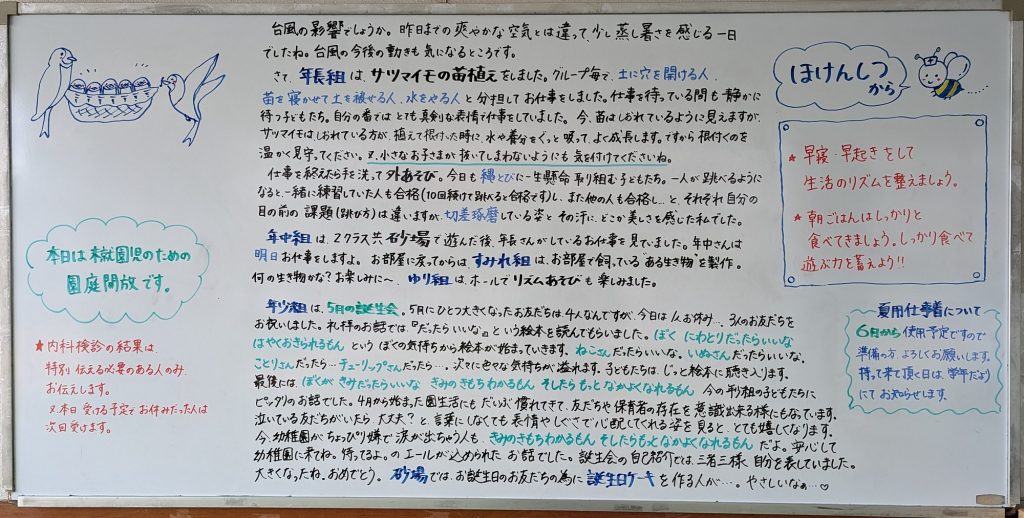 台風の影響でしょうか。昨日までの爽やかな空気とは違って、少し蒸し暑さを感じる一日
でしたね。台風の今後の動きも気になるところです。
さて、年長組は、サツマイモの苗植えをしました。グループ毎で、土に穴を開ける人、
苗を寝かせて土を被せる人、水をやる人と分担してお仕事をしました。仕事を待っている間も静かに
待つ子どもたち。自分の番ではとても真剣な表情で仕事をしていました。今、苗はしおれているように見えますが、
サツマイモはしおれている方が、植えて根付いた時に、水や養分をぐっと吸って、よく成長します。ですから根付くのを
温かく見守ってください。又、小さなお子さまが抜いてしまわないようにも気を付けてくださいね。
仕事を終えたら手を洗って外あそび。今日も縄とびに一生懸命取り組む子どもたち。一人が跳べるように
なると一緒に練習していた人も合格(10回続けて跳べると合格です)し、また他の人も合格し…と、それぞれ自分の
目の前の課題(跳び方)は違いますが、切磋琢磨している姿とその汗に、どこか美しさを感じた私でした。
年中組は、2クラス共砂場で遊んだ後、年長さんがしているお仕事を見ていました。年中さんは
明日お仕事をしますよ。お部屋に戻ってからは、すみれ組は、お部屋で飼っている"ある生き物"を製作。
何の生き物かな?お楽しみに〜。ゆり組は、ホールでリズムあそびも楽しみました。
年少組は、5月の誕生会。5月にひとつ大きくなったお友だちは、4人なんですが、今日は1人お休み…。3人のお友だちを
お祝いしました。礼拝のお話では、『だったらいいな』という絵本を読んでもらいました。ぼく にわとりだったらいいな
はやくおきられるもん というぼくの気持ちから絵本が始まっていきます。ねこさんだったらいいな。いぬさんだったらいいな。
ことりさんだったら…チューリップさんだったら…。次々に色々な気持ちが溢れます。子どもたちは、じっと絵本に聴き入ります。
最後には、ぼくが きみだったらいいな きみのきもちわかるもん そしたらもっとなかよくなれるもん 今の年少組の子どもたちに
ピッタリのお話でした。4月から始まった園生活にもだいぶ慣れてきて、友だちや保育者の存在を意識出来る様にもなっています。
泣いている友だちがいたら 大丈夫?と言葉にしなくても表情やしぐさで心配してくれる姿を見ると、とても嬉しくなります。
今、幼稚園がちょっぴり嫌で涙が出ちゃう人も、きみのきもちわかるもん そしたらもっとなかよくなれるもん だよ。安心して
幼稚園に来てね。待ってるよ。のエールが込められたお話でした。誕生会の自己紹介では、三者三様、自分を表していました。
大きくなったね。おめでとう。砂場では、お誕生日のお友だちの為に誕生日ケーキを作る人が…。やさしいなぁ…♡
本日は未就園児のための
園庭開放です。
★内科検診の結果は、
特別伝える必要のある人のみ、
お伝えします。
又、本日受ける予定でお休みだった人は
次回受けます。
ほけんしつ
から
★早寝・早起きをして
生活のリズムを整えましょう。
★朝ごはんはしっかりと
食べてきましょう。しっかり食べて
遊ぶ力を蓄えよう!!
夏用仕事着について
6月から使用予定ですので
準備の方、よろしくお願いします。
持って来て頂く日は、学年だより
にてお知らせします。